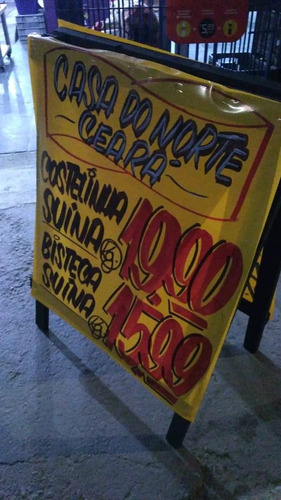 CASA DO NORTE
CEARÁ
COSTELINHA
SUÍNA 19,90
BISTECA
SUÍNA 15,99